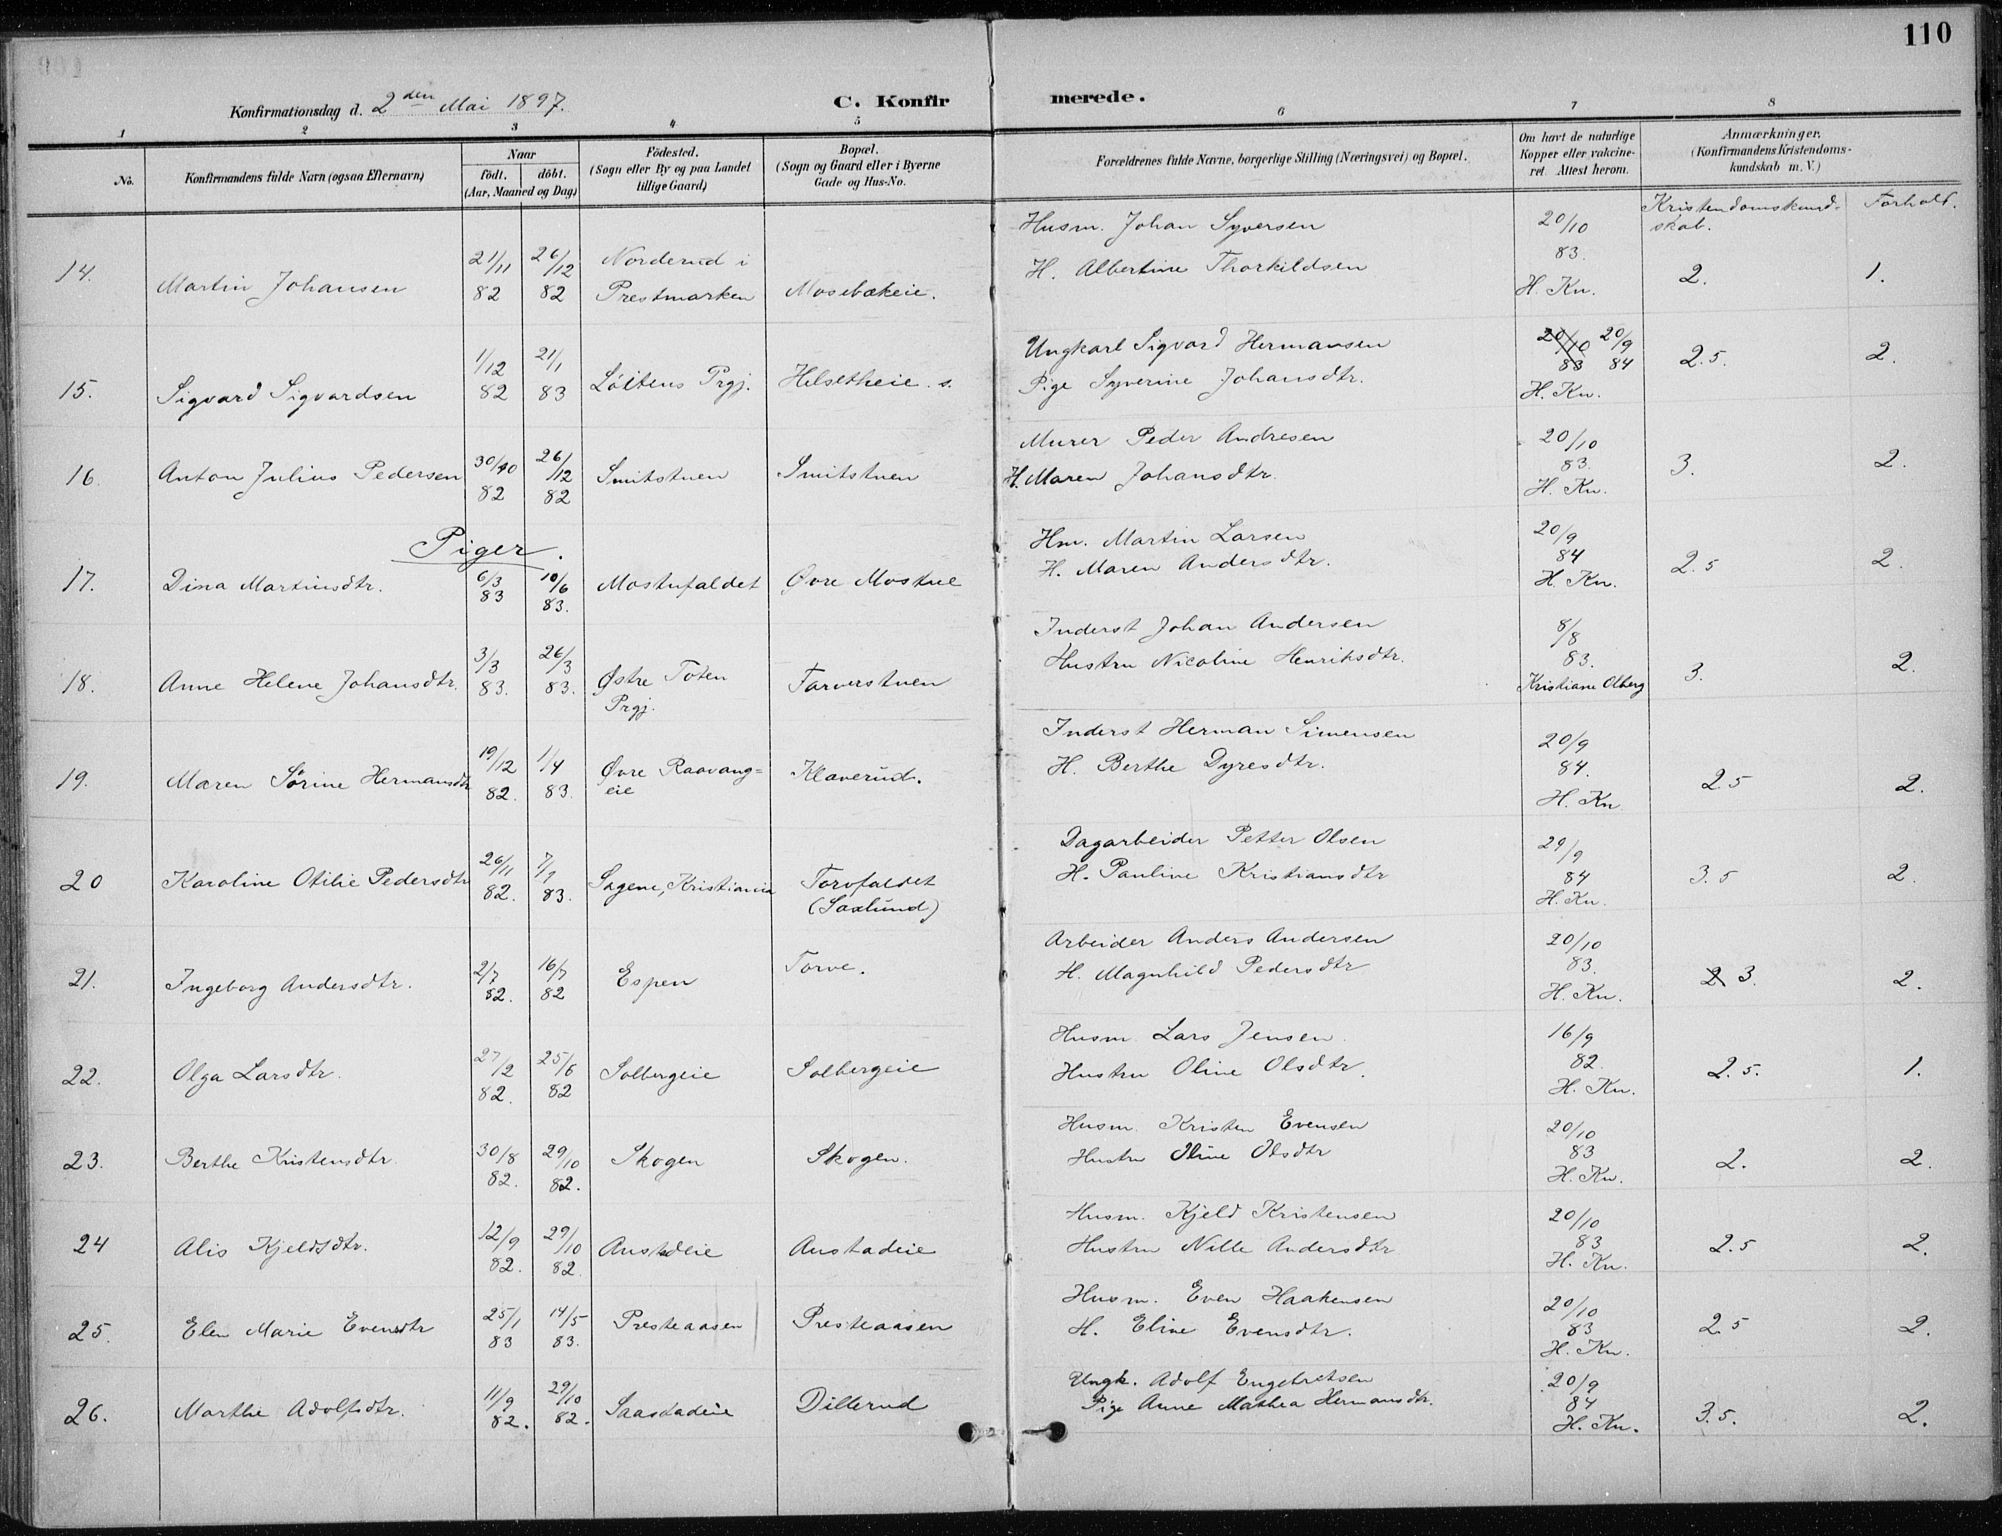 110
Konfirmationsdag d. 2den Mai 1897.
C. Konfirmerede.
1 2 3 4 5 6 7 8
No.
Konfirmandens fulde Navn (ogsaa Efternavn)
Naar
født. døbt.
(Aar, Maaned og Dag)
Fødested.
(Sogn eller By og paa Landet
tillige Gaard)
Bopæl.
(Sogn og Gaard eller i Byerne
Gade og Hus-No.
Forældrenes fulde Navne, borgerlige Stilling (Næringsvei) og Bopæl.
Om havt de naturlige
Kopper eller vakcine-
ret. Attest herom.
Anmærkninger.
(Konfirmandens Kristendoms-
kundskab m. V.)
Kristendomskund-
skab.
Forhold.
14. Martin Johansen 21/11 82 26/12 82 Norderud i Prestmarken Mosebækeie. Husm. Johan Syversen
H. Albertine Thorkildsen 20/10 83. H. Kn. 2. 1.
15. Sigvard Sigvardsen 1/12 82 21/1 83 Løitens Prgj. Helsetheie. s. Ungkarl Sigvard Hermansen
Pige Syverine Johansdtr. 20/10 83 20/9 84 H. Kn. 2.5. 2.
16. Anton Julius Pedersen 30/10 82 26/12 82 Smitstuen Smitstuen Murer Peder Andresen
H. Maren Johansdtr. 20/10 83. H. Kn. 3. 2.
Piger.
17. Dina Martinsdtr. 6/3 83 10/6 83. Mostufaldet Øvre Mostue Hm. Martin Larsen
H. Maren Andersdtr. 20/9 84 H. Kn. 2.5 2.
18. Anne Helene Johansdtr. 3/3 83. 26/3 83. Østre Toten Prgj. Torverstuen Inderst Johan Andersen
Hustru Nicoline Henriksdtr. 8/8 83. Kristiane Olberg 3. 2.
19. Maren Sørine Hermansdtr 19/12 82. 1/4 83. Øvre Raavang=
eie Klaverud. Inderst Herman Simensen
H. Berthe Dyresdtr. 20/9 84. H. Kn. 2.5 2.
20 Karoline Otilie Pedersdtr 26/11 82. 7/1 83. Sagene, Kristiania Torvfaldet
(Saxlund) Dagarbeider Petter Olsen
H. Pauline Kristiansdtr 29/9 84 H. Kn. 3.5 2.
21. Ingeborg Andersdtr. 2/7 82. 16/7 82 Espen Torve. Arbeider Anders Andersen
H. Magnhild Pedersdtr 20/10 83. H. Kn. 2 3. 2.
22. Olga Larsdtr. 27/2 82. 25/6 82 Solbergeie Solbergeie Husm. Lars Jensen.
Hustru Oline Olsdtr. 16/9 82. H. Kn. 2.5. 1.
23. Berthe Kristensdtr 30/8 82. 29/10 82. Skogen Skogen. Husm. Kristen Evensen
Hustru Oline Olsdtr 20/10 83 H. Kn. 2. 2.
24 Alis Kjeldsdtr. 12/9 82. 29/10 82. Austadeie Austadeie Husm. Kjeld Kristensen
Hustru Nille Andersdtr 20/10 83 H. Kn. 2.5 2.
25. Elen Marie Evensdtr 25/1 83 14/5 83. Presteaasen Presteaasen Husm. Even Haakensen
H. Eline Evensdtr. 20/10 83 H. Kn. 2.5 2.
26. Marthe Adolfsdtr. 11/9 82. 29/10 82. Saastadeie Dillerud Ungk. Adolf Engebretsen
Pige Anne Mathea Hermansdtr. 20/9 84 H. Kn. 3.5. 2.